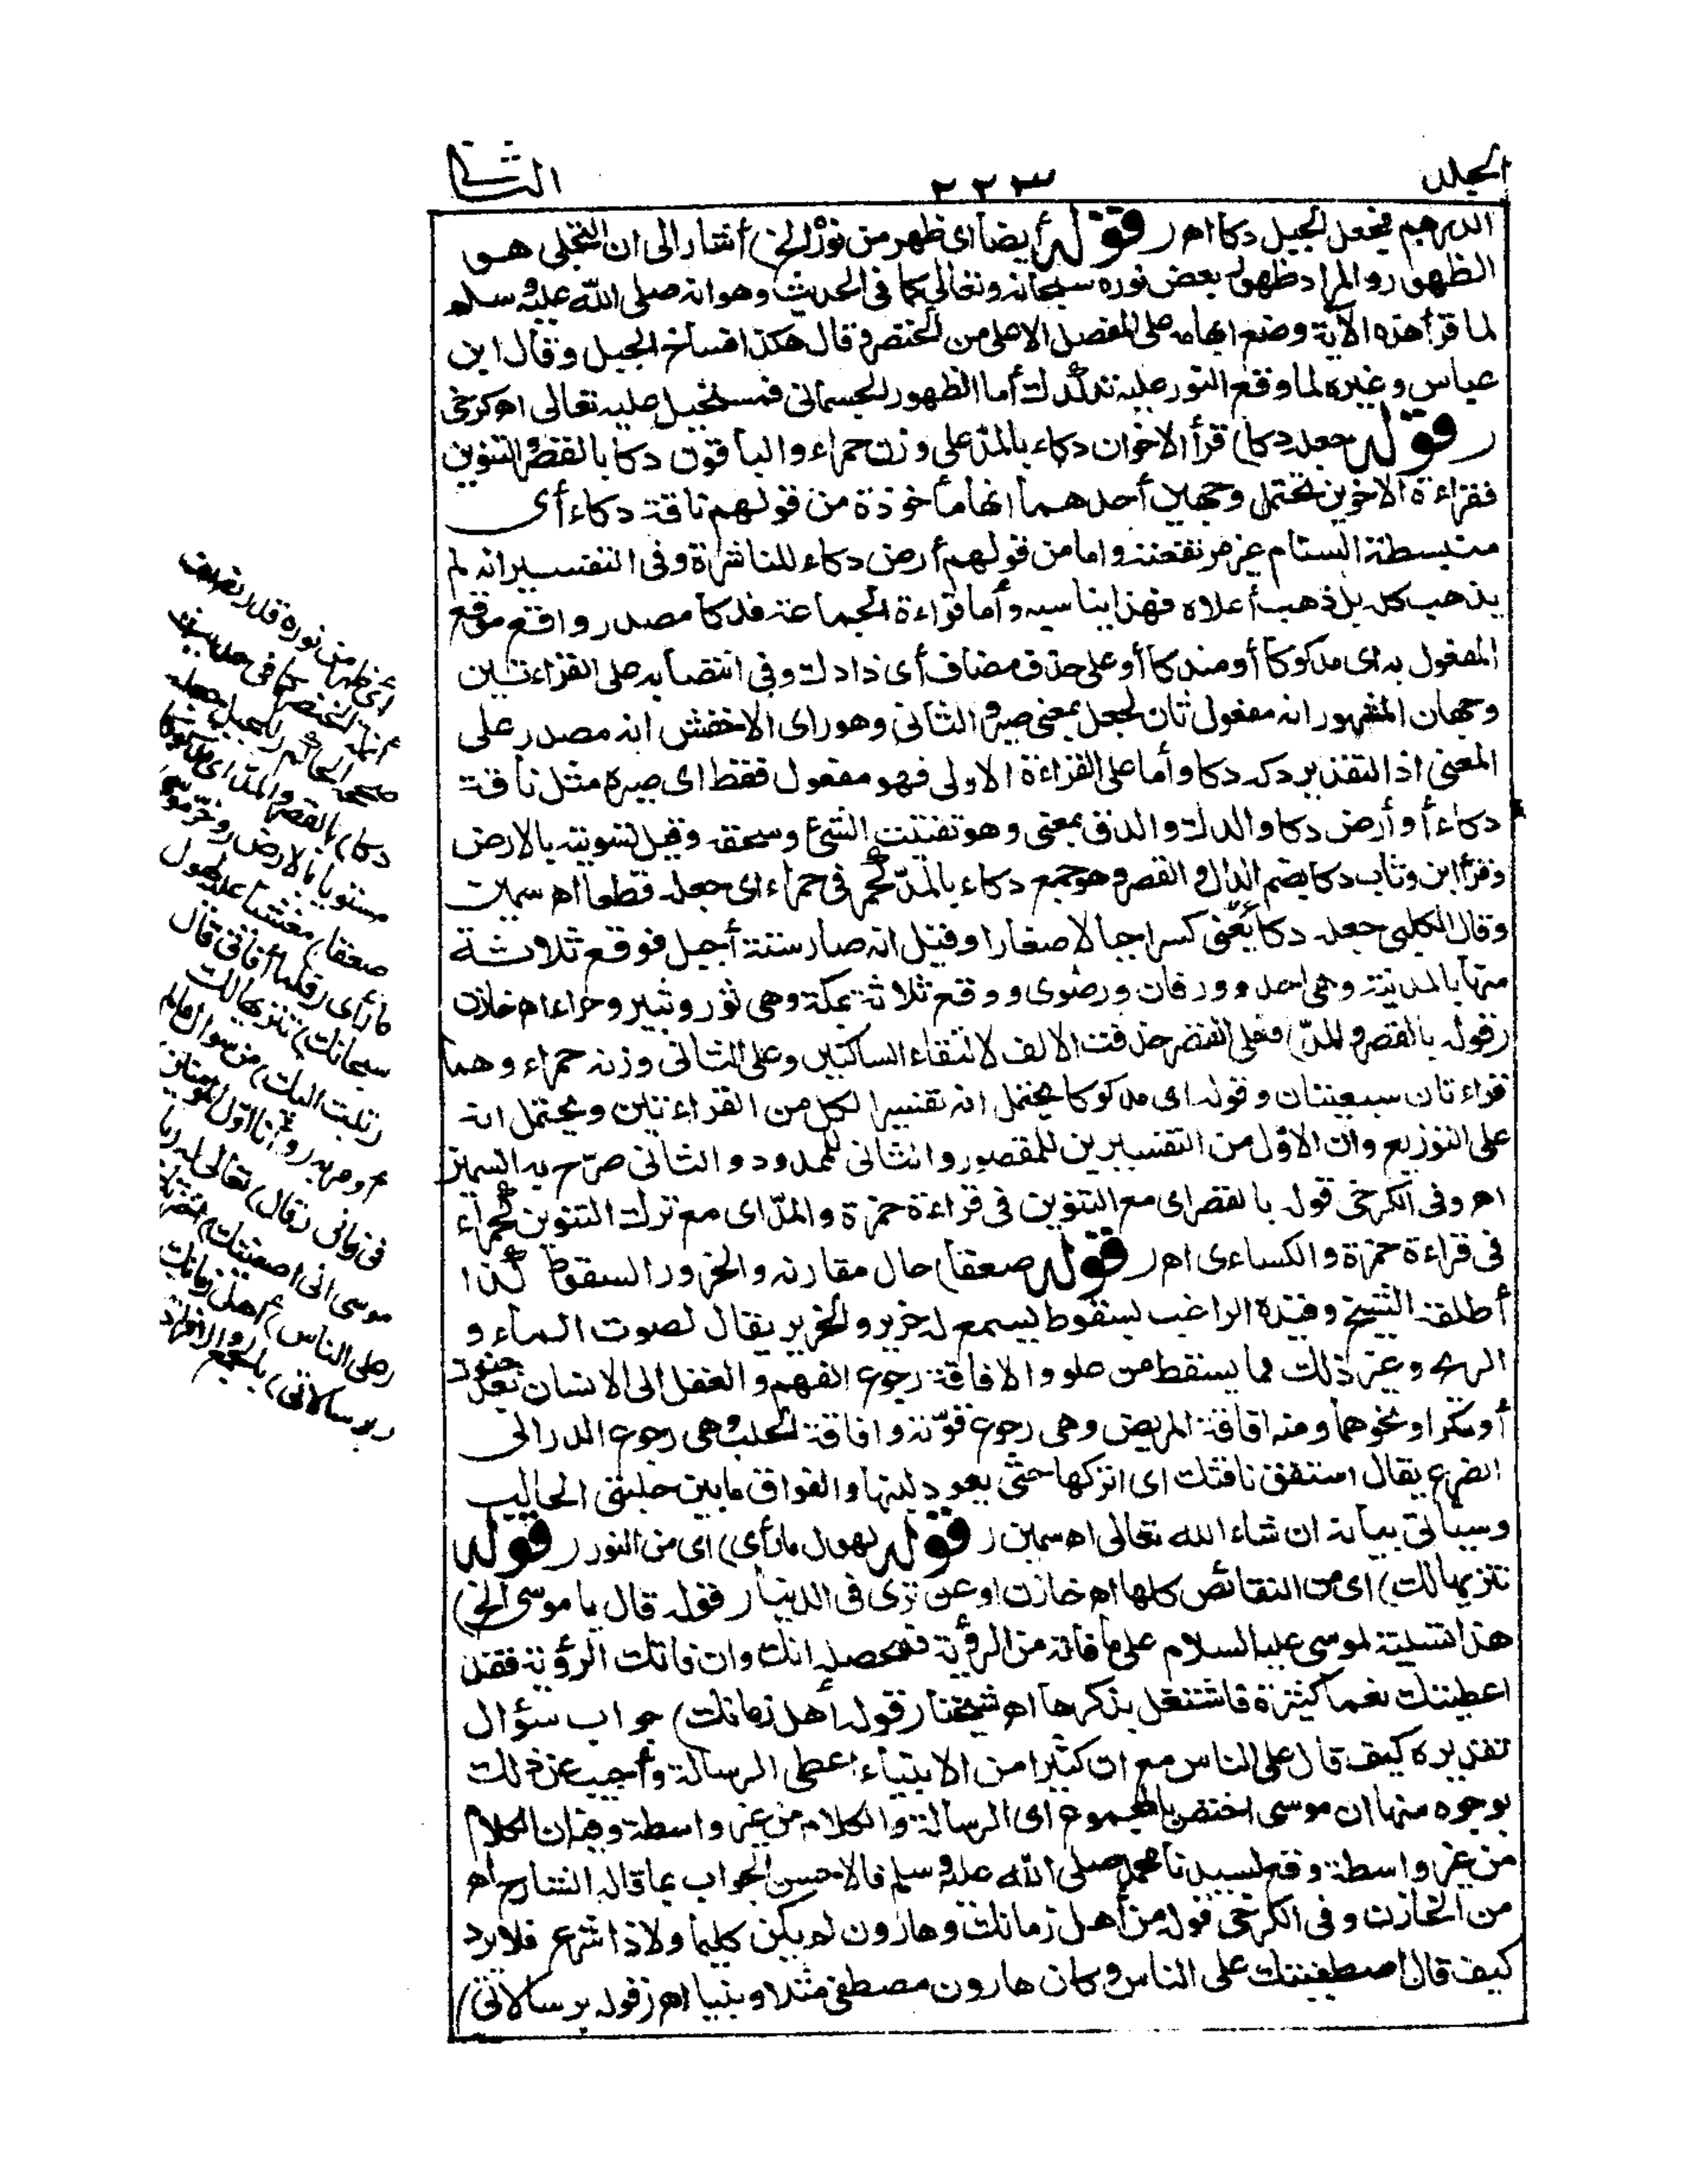 المجلد
٢٢٣
الثاني
الدرهم فجعل الجبل دكا اهـ (قوله أيضا اى ظهر من نوره الخ) أشار الى ان التجلى هو
الظهور والمراد ظهور بعض نوره سبحانه وتعالى كما فى الحديث وهو انه صلى الله عليه وسلم
لما قرأ هذه الآية وضع ابهامه على المفصل الاعلى من الخنصر وقال هكذا فساخ الجبل وقال ابن
عباس وغيره لما وقع النور عليه تدكدك أما الظهور الجسمانى فمستحيل عليه تعالى اهـ كرخى
(قوله جعله دكا) قرأ الاخوان دكاء بالمد على وزن حمراء والباقون دكا بالقصر والتنوين
فقراءة الاخوين تحتمل وجهين أحدهما انها مأخوذة من قولهم ناقة دكاء أى
منبسطة السنام غير مرتفعته واما من قولهم أرض دكاء للناشزة وفى التفسير انه لم
يذهب كله بل ذهب أعلاه فهذا يناسبه وأما قراءة الجماعة فدكا مصدر واقع موقع
المفعول به اى مدكوكا أو مندكا أو على حذف مضاف أى ذا دك وفى انتصابه على القراءتين
وجهان المشهور انه مفعول ثان لجعل بمعنى صير والثانى وهو راى الاخفش انه مصدر على
المعنى اذ التقدير دكه دكا وأما على القراءة الاولى فهو مفعول فقط اى صيره مثل ناقة
دكاء أو أرض دكا والدك والدق بمعنى وهو تفتيت الشئ وسحقه وقيل تسويته بالارض
وقرأ ابن وثاب دكا بضم الدال والقصر وهو جمع دكاء بالمد كحمر فى حمراء اى جعله قطعا اهـ سمين
وقال الكلبى جعله دكا يعنى كسرا جبالا صغارا وقيل انه صار ستة أجبل فوقع ثلاثة
منها بالمدينة وهى احد وورقان ورضوى ووقع ثلاثة بمكة وهى ثور وثبير وحراء اهـ خازن
(قوله بالقصر والمد) فعلى القصر حذفت الالف لالتقاء الساكنين وعلى الثانى وزنه حمراء وهما
قراءتان سبعيتان وقوله اى مدكوكا يحتمل انه تفسير لكل من القراءتين ويحتمل انه
على التوزيع وان الاول من التفسيرين للمقصور والثانى للممدود والثانى صرح به السمين
اهـ وفى الكرخى قوله بالقصر اى مع التنوين فى قراءة حمزة والمد اى مع ترك التنوين كحمراء
فى قراءة حمزة والكساءى اهـ (قوله صعقا) حال مقارنه والخرور السقوط كذا
أطلقه الشيخ وقيده الراغب بسقوط يسمع له خرير والخرير يقال لصوت الماء و
الريح وغير ذلك مما يسقط من علو والافاقة رجوع الفهم والعقل الى الانسان بعد جنون
أو سكر او نحوهما ومنه افاقة المريض وهى رجوع قوته وافاقة الحلب وهى رجوع الدر الى
الضرع يقال استفق ناقتك اى اتركها حتى يعود لبنها والفواق ما بين حلبتى الحالب
وسيأتى بيانه ان شاء الله تعالى اهـ سمين (قوله لهول ما رأى) اى من النور (قوله
تنزيها لك) اى من النقائص كلها اهـ خازن او عن ترى فى الدنيا (قوله قال يا موسى الخ)
هذا تسلية لموسى عليه السلام على ما فاته من الرؤية فمحصله انك وان فاتك الرؤية فقد
اعطيتك نعما كثيرة فاشتغل بذكرها اهـ شيخنا (قوله أهل زمانك) جواب سؤال
تقديره كيف قال على الناس مع ان كثيرا من الانبياء اعطى الرسالة وأجيب عن ذلك
بوجوه منها ان موسى اختص بالمجموع اى الرسالة والكلام من غير واسطة وفيه ان الكلام
من غير واسطة وقع لسيدنا محمد صلى الله عليه وسلم فالاحسن الجواب بما قاله الشارح اهـ
من الخازن وفى الكرخى قوله من أهل زمانك وهارون لم يكن كليما ولا ذا شرع فلا يرد
كيف قال اصطفيتك على الناس وكان هارون مصطفى مثله ونبيا اهـ (قوله برسالاتى)
أى ظهر من نوره قدر نصف
أنملة الخنصر كما فى حديث
صححه الحاكم (للجبل جعله
دكا) بالقصر والمد اى مدكوكا
مستويا بالارض (وخر موسى
صعقا) مغشيا عليه لهول
ما رأى (فلما أفاق قال
سبحانك) تنزيها لك
(تبت اليك) من سؤال ما لم
أومر به (وأنا أول المؤمنين)
فى زمانى (قال) تعالى له (يا
موسى انى اصطفيتك) اخترتك
(على الناس) أهل زمانك
(برسالاتى) بالجمع والافراد